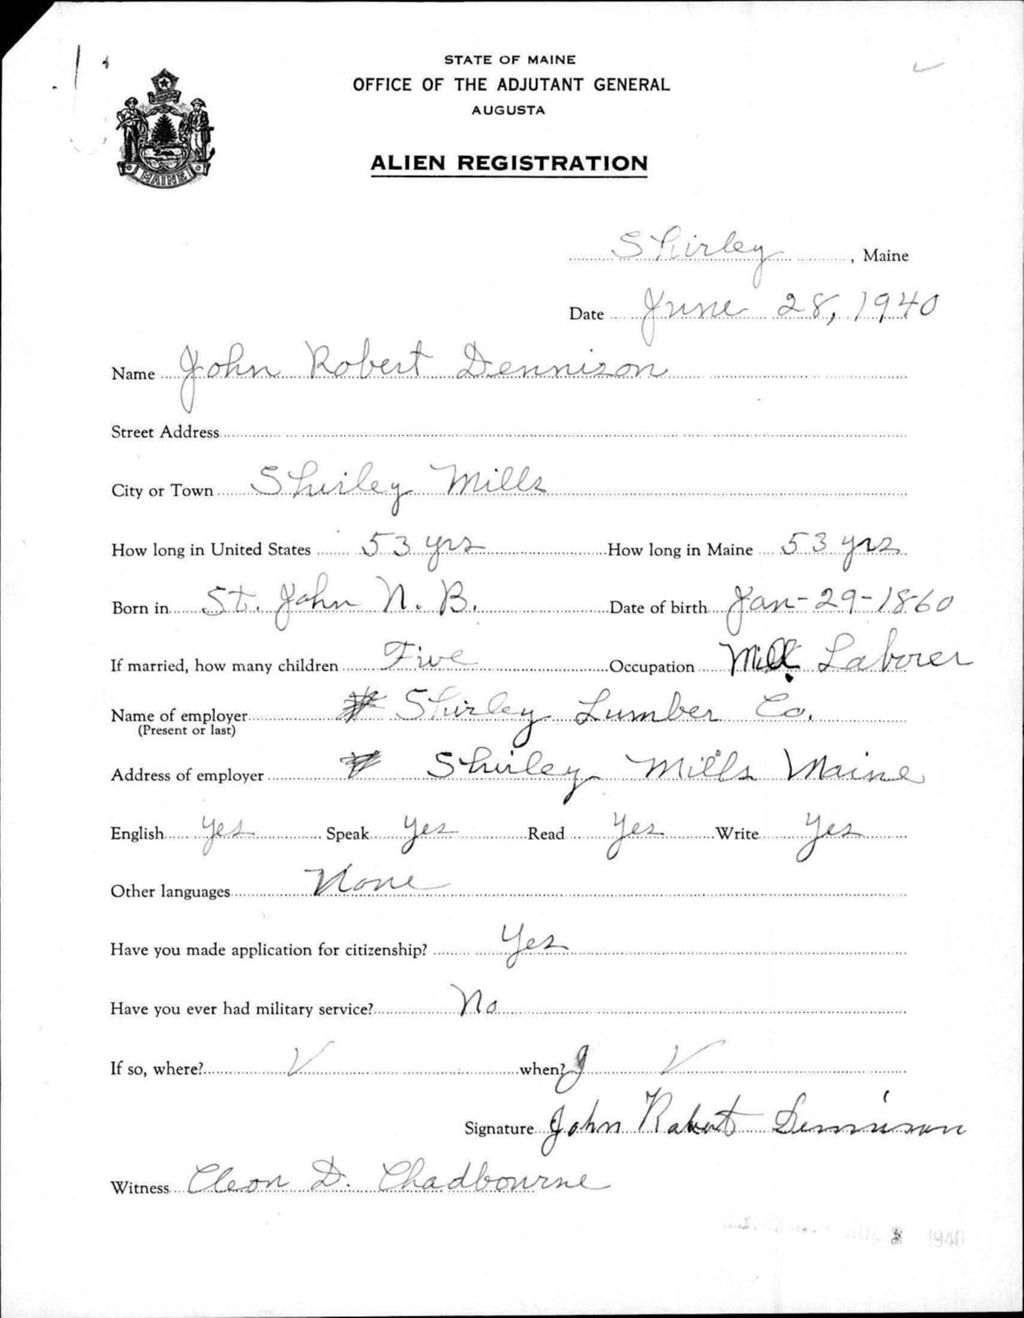 STATE OF MAINE
OFFICE OF THE ADJUTANT GENERAL
AUGUSTA
ALIEN REGISTRATION
MAINE
Shirley, Maine
Date June 28, 1940
Name John Robert Dennison
Street Address
City or Town Shirley Mills
How long in United States 53 yrs How long in Maine 53 yrs
Born in St. John N. B. Date of birth Jan-29-1860
If married, how many children Five Occupation Mill Laborer
Name of employer Shirley Lumber Co.
(Present or last)
Address of employer Shirley Mills Maine
English Yes Speak Yes Read Yes Write Yes
Other languages None
Have you made application for citizenship? Yes
Have you ever had military service? No
If so, where? when?
Signature John Robert Dennison
Witness Cleon D. Chadbourne
1940